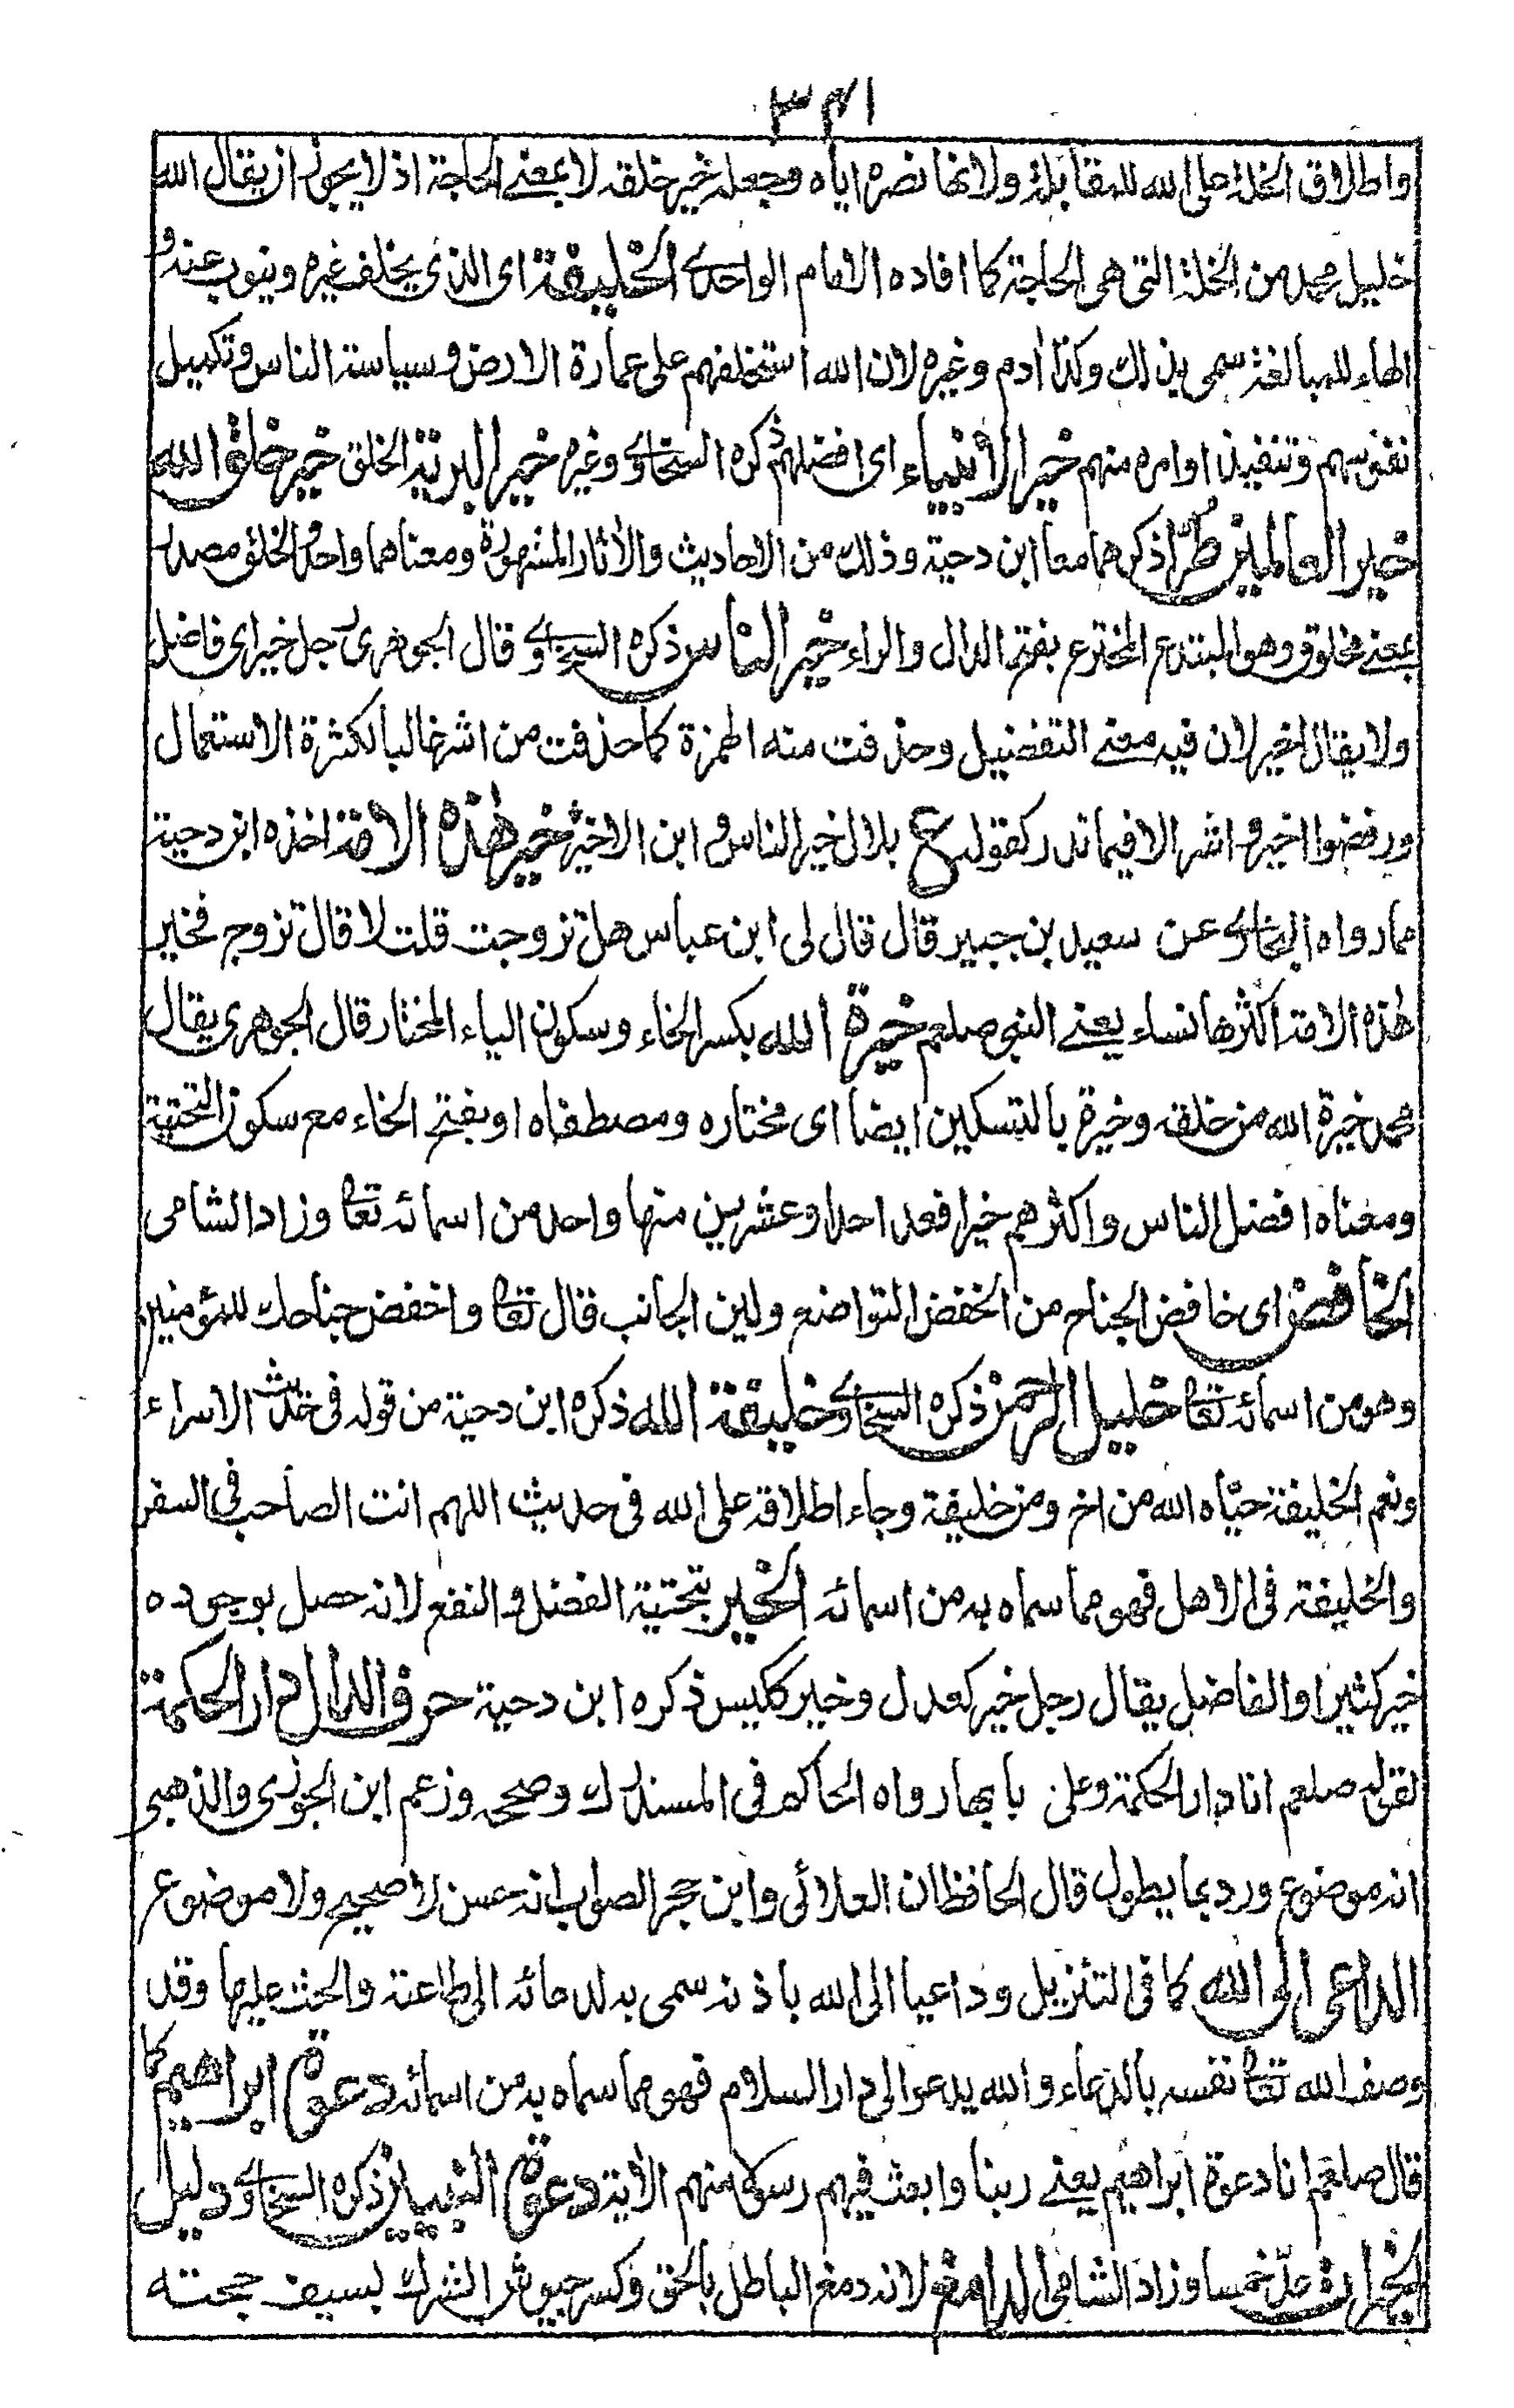 ٣٤١
واطلاق الخلة على الله للمقابلة ولانها نصره اياه وجعله خير خلقه لا بمعنے الحاجة اذ لا يجوز ان يقال الله
خليل محمد من الخلة التى هى الحاجة كما افاده الامام الواحدى الخليفة اى الذى يخلف غيره وينوب عنه و
الهاء للمبالغة سمى بذلك وكذا ادم وغيره لان الله استخلفهم على عمارة الارض وسياسة الناس وتكميل
نفوسهم وتنفيذ اوامره منهم خير الانبياء اى افضلهم ذكره السخاوى وغيره خير البرية الخلق خير خلق الله
خير العالمين طرّا ذكرهما معا ابن دحية وذلك من الاحاديث والاثار المشهورة ومعناهما واحد والخلق مصدر
بمعنے مخلوق وهو المبتدع المخترع بفتح الدال والراء خير الناس ذكره السخاوى وقال الجوهرى رجل خير اى فاضل
ولا يقال اخير لان فيه معنے التفضيل وحذفت منه الهمزة كما حذفت من اشر غالبا لكثرة الاستعمال
ورفضوا اخير و اشر الا فيما ندر كقوله ع بلال خير الناس و ابن الاخير خير هذه الامة اخذه ابن دحية
مما رواه البخارى عن سعيد بن جبير قال قال لى ابن عباس هل تزوجت قلت لا قال تزوج فخير
هذه الامة اكثرها نساء يعنے النبى صلعم خيرة الله بكسر الخاء وسكون الياء المختار قال الجوهرى يقال
محمد خيرة الله من خلقه وخيرة بالتسكين ايضا اى مختاره ومصطفاه او بفتح الخاء مع سكون التحتية
ومعناه افضل الناس واكثرهم خيرا فعد احدا وعشرين منها واحد من اسمائه تعا وزاد الشامى
الخافض اى خافض الجناح من الخفض التواضع ولين الجانب قال تعا واخفض جناحك للمؤمنين
وهو من اسمائه تعا خليل الرحمن ذكره السخاوى خليفة الله ذكره ابن دحية من قوله فى حديث الاسراء
ونعم الخليفة حيّاه الله من اخ ومن خليفة وجاء اطلاقه على الله فى حديث اللهم انت الصاحب فى السفر
والخليفة فى الاهل فهو مما سماه به من اسمائه الخير بتحتية الفضل و النفع لانه حصل بوجوده
خير كثير او الفاضل يقال رجل خير كعدل وخير ككيس ذكره ابن دحية حرف الدال دار الحكمة
لقوله صلعم انا دار الحكمة وعلى بابها رواه الحاكم فى المستدرك وصححه وزعم ابن الجوزى والذهبى
انه موضوع ورد بما يطول قال الحافظان العلائى وابن حجر الصواب انه حسن لا صحيح ولا موضوع
الداعى الى الله كما فى التنزيل وداعيا الى الله باذنه سمى به لدعائه الى طاعته والحث عليها وقد
وصف الله تعا نفسه بالدعاء والله يدعو الى دار السلام فهو مما سماه به من اسمائه دعوة ابراهيم كما
قال صلعم انا دعوة ابراهيم يعنے ربنا وابعث فيهم رسولا منهم الاية دعوة النبيين ذكره السخاوى دليل
الخيرات عدّ خمسا وزاد الشامى الدامغ لانه دمغ الباطل بالحق وكسر جيوش الشرك بسيف حجته